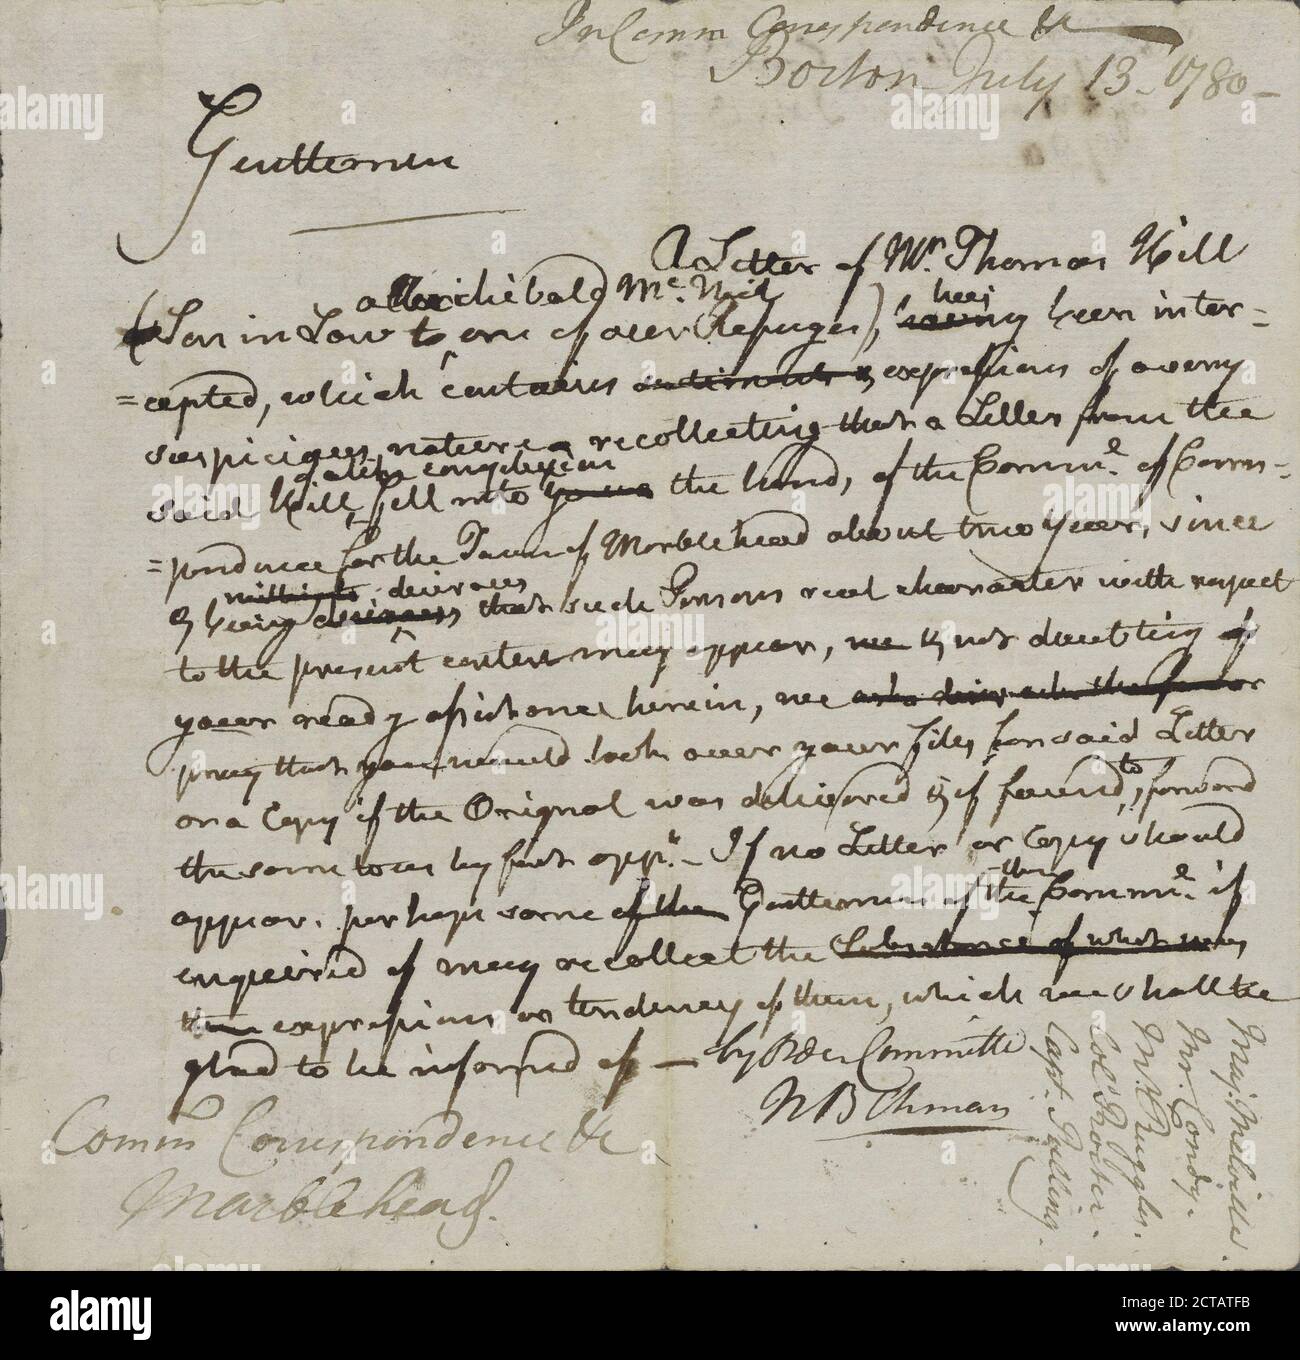 In Comm Correspondence &c
Boston July 13. 1780-
Gentlemen
A Letter of Mr. Thomas Hill
Archibald McNeil
(Son in Law to one of our Refugees), having been inter=
has
=cepted, which contains sentiments & expressions of a very
suspicious nature & recollecting that a Letter from the
said Hill, fell into the hand, of the Comme. of Corres=
of a like complexion
=pondence for the Town of Marblehead about two years, since
& being desirous that such Persons real character with respect
desirous
to the present contest may appear, we & not doubting of
your ready assistance herein, we
pray that you would look over your files for said Letter
or a Copy if the Original was delivered & if found, forward
to
the same to us by first oppy. - If no Letter or Copy should
appear, perhaps some of the Gentlemen of the Comme. if
then
enquired of may recollect the Substance of what was
expressions or tendency of them, which we shall be
glad to be informed of — by Order Committe
N B Chman
Comm Correspondence &c
Marblehead.
Maj. Melville.
Mr. Condy.
Mr. Ruggles.
Col. Procter.
Capt. Pulling.
alamy
Image ID: 2CTATFB
www.alamy.com